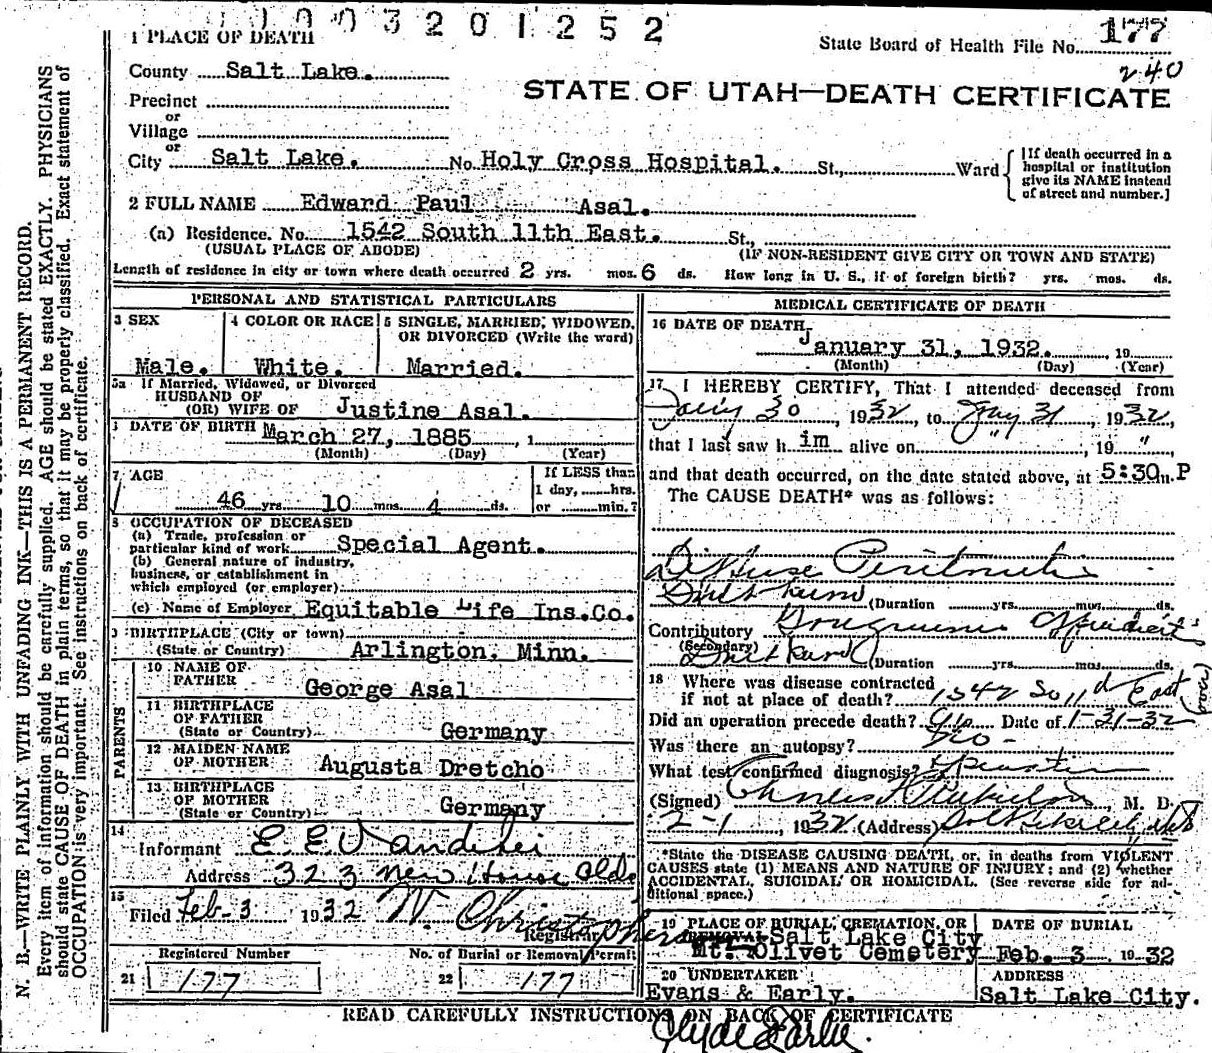 003201252
1 PLACE OF DEATH
State Board of Health File No. 177
240
County Salt Lake.
STATE OF UTAH—DEATH CERTIFICATE
Precinct
or
Village
or
City Salt Lake. No. Holy Cross Hospital. St., Ward
[If death occurred in a hospital or institution give its NAME instead of street and number.]
2 FULL NAME Edward Paul Asal.
(a) Residence. No. 1542 South 11th East. St.,
(USUAL PLACE OF ABODE) (IF NON-RESIDENT GIVE CITY OR TOWN AND STATE)
Length of residence in city or town where death occurred 2 yrs. mos. 6 ds. How long in U. S., if of foreign birth? yrs. mos. ds.
PERSONAL AND STATISTICAL PARTICULARS
3 SEX
Male.
4 COLOR OR RACE
White.
5 SINGLE, MARRIED, WIDOWED,
OR DIVORCED (Write the word)
Married.
5a If Married, Widowed, or Divorced
HUSBAND OF
(OR) WIFE OF Justine Asal.
DATE OF BIRTH March 27, 1885, 1
(Month) (Day) (Year)
7 AGE
46 yrs. 10 mos. 4 ds.
If LESS than
1 day, hrs.
or min.?
8 OCCUPATION OF DECEASED
(a) Trade, profession or
particular kind of work Special Agent.
(b) General nature of industry,
business, or establishment in
which employed (or employer)
(c) Name of Employer Equitable Life Ins.Co.
9 BIRTHPLACE (City or town)
(State or Country) Arlington, Minn.
PARENTS
10 NAME OF
FATHER George Asal
11 BIRTHPLACE
OF FATHER
(State or Country) Germany
12 MAIDEN NAME
OF MOTHER Augusta Dretcho
13 BIRTHPLACE
OF MOTHER
(State or Country) Germany
14
Informant E. E. Vandehei
Address 323 New House Bldg
15
Filed Feb-3 1932 W. Christophers
Registrar
Registered Number No. of Burial or Removal Permit
21 177 22 177
MEDICAL CERTIFICATE OF DEATH
16 DATE OF DEATH
January 31, 1932. , 19
(Month) (Day) (Year)
17 I HEREBY CERTIFY, That I attended deceased from
Jany 30, 1932, to Jany 31, 1932,
that I last saw h im alive on " , 19 ",
and that death occurred, on the date stated above, at 5:30 m. P
The CAUSE DEATH* was as follows:
Diffuse Peritonitis
(Duration yrs. mos. ds.
Contributory Gangrenous Appendicitis
(Secondary)
(Duration yrs. mos. ds.
18 Where was disease contracted
if not at place of death? 1542 So 11th East
Did an operation precede death? Yes Date of 1-31-32
Was there an autopsy? No -
What test confirmed diagnosis? Operation
(Signed) Charles M. D.
2-1, 1932 (Address) Salt Lake City Utah
*State the DISEASE CAUSING DEATH, or, in deaths from VIOLENT
CAUSES state (1) MEANS AND NATURE OF INJURY; and (2) whether
ACCIDENTAL, SUICIDAL OR HOMICIDAL. (See reverse side for ad-
ditional space.)
19 PLACE OF BURIAL, CREMATION, OR
REMOVAL Salt Lake City
Mt. Olivet Cemetery
DATE OF BURIAL
Feb. 3 1932
20 UNDERTAKER
Evans & Early.
ADDRESS
Salt Lake City.
READ CAREFULLY INSTRUCTIONS ON BACK OF CERTIFICATE
Clyde Earlie.
N. B.—WRITE PLAINLY WITH UNFADING INK—THIS IS A PERMANENT RECORD.
Every item of information should be carefully supplied. AGE should be stated EXACTLY. PHYSICIANS
should state CAUSE OF DEATH in plain terms, so that it may be properly classified. Exact statement of
OCCUPATION is very important. See instructions on back of certificate.